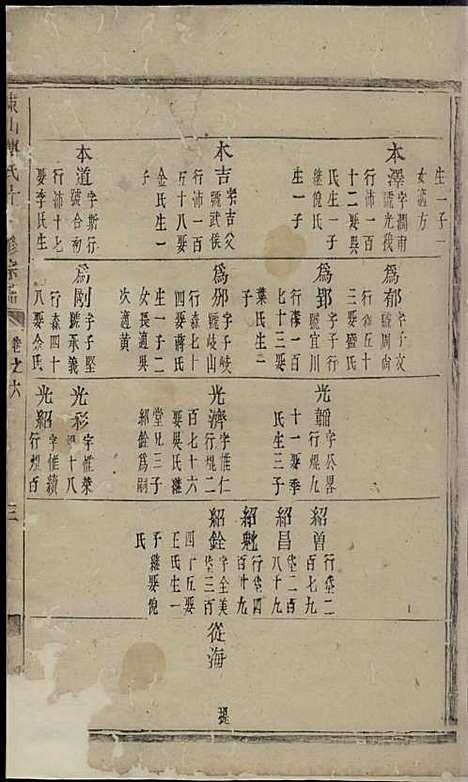 生一子一
女適方
本澤
字潤甫
號光
行沛一百
十二娶
氏生一子
繼倪氏
生一子
本吉
字吉父
號武侯
行沛一百
五十八娶
金氏生一
子
本道
字斯行
號合初
行沛十七
娶李氏生
為郁
字子文
號周尚
行森五十
三娶盛氏
為郢
字子行
號宜川
行濛一百
七十三娶
葉氏生一
子
為邠
字子岐
號岐山
行森七十
四娶蔣氏
生一子二
女長適吳
次適黃
為剛
字子堅
號承義
行森四十
八娶余氏
光韶
字公畧
行焜九
十一娶季
氏生三子
光濟
字惟仁
行焜二
百七十六
娶吳氏繼
堂兄三子
紹銓為嗣
光彩
字惟榮
焜十八
光紹
字惟績
行焜百
紹曾
行垡二
百七九
紹昌
垡二百
八十九
紹魁
行垡四
百廿九
紹銓
字全美
垡三百
四十五娶
王氏生一
子繼娶倪
氏
從海
珽
卷之六
三